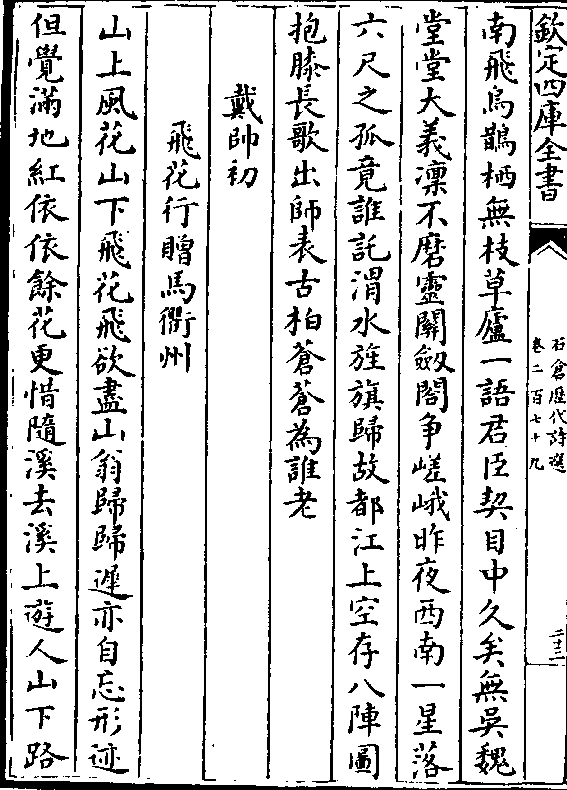 欽定四庫全書
石倉歷代詩選
卷二百七十九
二十三
南飛烏鵲栖無枝草廬一語君臣契目中久矣無吳魏
堂堂大義凛不磨靈關劔閣爭嵯峨昨夜西南一星落
六尺之孤竟誰託渭水旌旗歸故都江上空存八陣圖
抱膝長歌出師表古柏蒼蒼為誰老
戴帥初
飛花行贈馬衢州
山上風花山下飛花飛欲盡山翁歸歸遲亦自忘形迹
但覺滿地紅依依餘花更惜隨溪去溪上遊人山下路